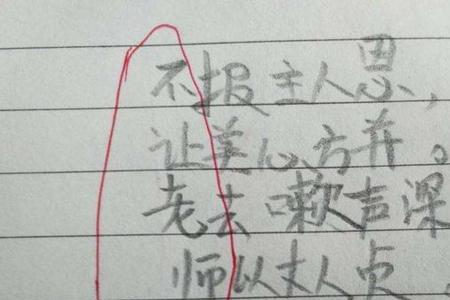 不报主人恩,
让美心方并。
老去嗽声深
师以丈人贞